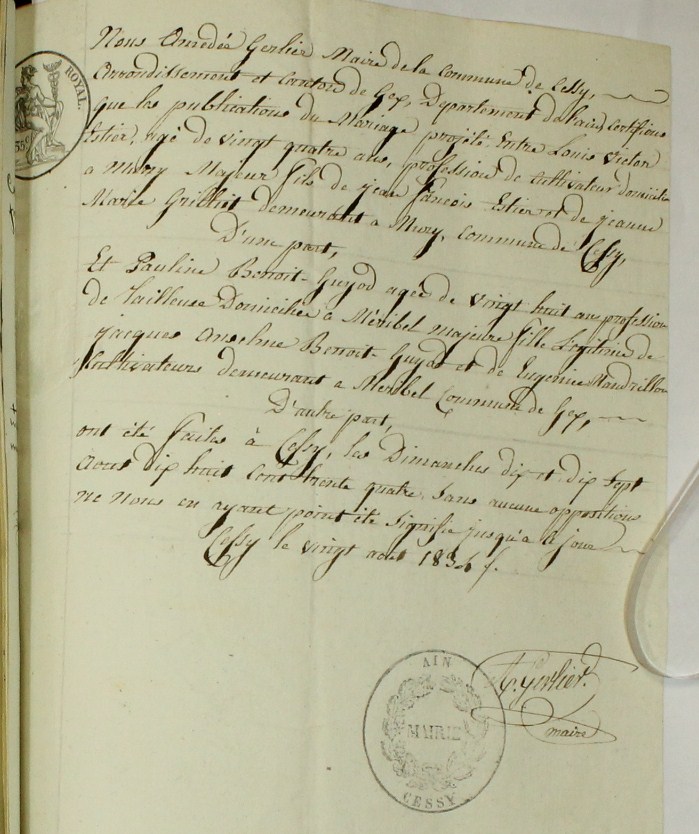 ROYAL.
35
Nous Amedée Gerlier Maire de la commune de Cessy,
Arrondissement et canton de Gex, Département de l'ain, certifions
que les publications du Mariage projeté Entre Louis Victor
Estier, agé de vingt quatre ans, profession de Cultivateur domicilié
a Mury Majeur fils de jean francois Estier et de jeanne
Marie Grilliet demeurant a Mury, Commune de Cessy,
D'une part,
Et Pauline Benoit-Guyod agée de vingt huit ans profession
de Tailleuse Domiciliée a Méribel majeure fille Légitime de
jacques Anselme Benoit-Guyod et de Eugénie Mandrillon
Cultivateurs demeurant a Meribel Commune de Gex,
D'autre part,
ont été faites à Cessy, les Dimanches dix et dix sept
aout dix huit cent trente quatre, sans aucune opposition
ne nous en ayant point été signifié jusqu'a ce jour
Cessy le vingt aout 1834 /.
A. Gerlier.
maire
AIN
MAIRIE
CESSY